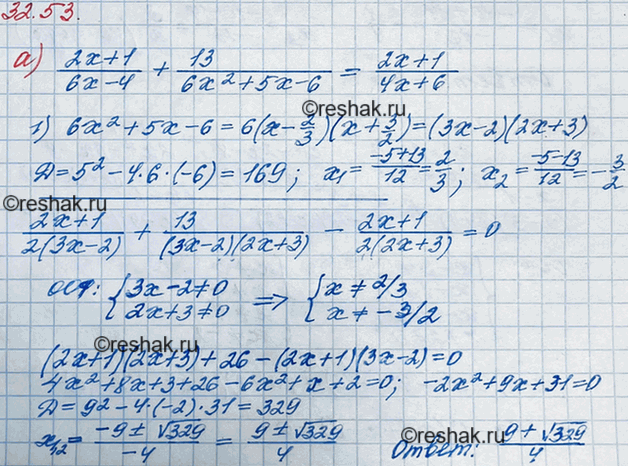 32.53.
а) (2x+1)/(6x-4) + 13/(6x²+5x-6) = (2x+1)/(4x+6)
©reshak.ru
1) 6x²+5x-6=6(x-2/3)(x+3/2)=(3x-2)(2x+3)
Д=5²-4·6·(-6)=169; x₁=(-5+13)/12=2/3; x₂=(-5-13)/12=-3/2
©reshak.ru
(2x+1)/(2(3x-2)) + 13/((3x-2)(2x+3)) - (2x+1)/(2(2x+3)) = 0
ОДЗ: {3x-2≠0 ⇒ {x≠2/3
2x+3≠0 x≠-3/2
©reshak.ru
(2x+1)(2x+3)+26-(2x+1)(3x-2)=0
4x²+8x+3+26-6x²+x+2=0; -2x²+9x+31=0
Д=9²-4·(-2)·31=329
x₁,₂=(-9±√329)/(-4) = (9±√329)/4 Ответ: (9±√329)/4
©reshak.ru